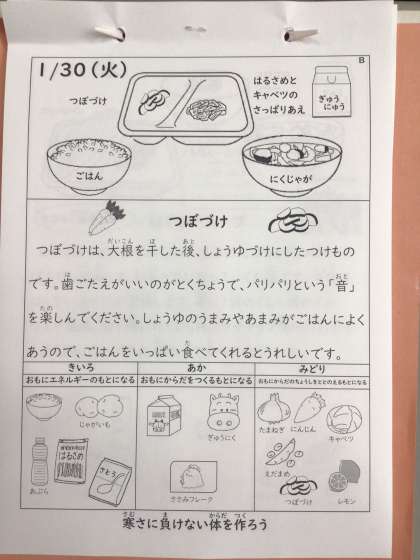 1/30(火)
B
つぼづけ
はるさめと
キャベツの
さっぱりあえ
ぎゅう
にゅう
ごはん
にくじゃが
つぼづけ
つぼづけは、大根を干した後、しょうゆづけにしたつけもの
です。歯ごたえがいいのがとくちょうで、パリパリという「音」
を楽しんでください。しょうゆのうまみやあまみがごはんによく
あうので、ごはんをいっぱい食べてくれるとうれしいです。
きいろ
あか
みどり
おもにエネルギーのもとになる
おもにからだをつくるもとになる
おもにからだのちょうしをととのえるもとになる
じゃがいも
ぎゅうにく
たまねぎ
にんじん
キャベツ
あぶら
はるさめ
さとう
ささみフレーク
えだまめ
つぼづけ
レモン
寒さに負けない体を作ろう